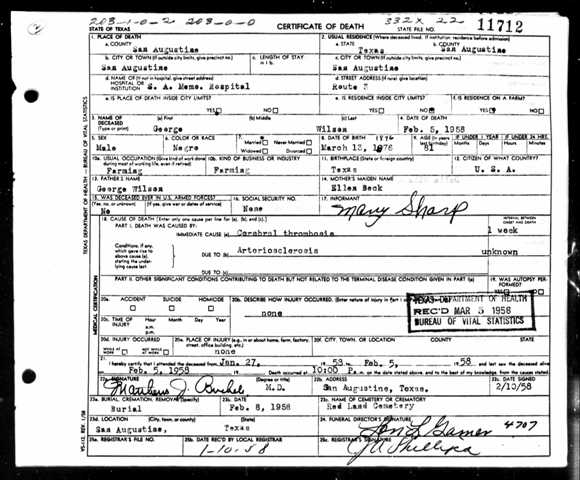 203-1-0-2 203-0-0 332X 22
STATE OF TEXAS CERTIFICATE OF DEATH STATE FILE NO. 11712
1. PLACE OF DEATH 2. USUAL RESIDENCE (Where deceased lived. If institution: residence before admission)
a. COUNTY a. STATE b. COUNTY
San Augustine Texas San Augustine
b. CITY OR TOWN (If outside city limits, give precinct no.) c. LENGTH OF STAY c. CITY OR TOWN (If outside city limits, give precinct no.)
San Augustine San Augustine
d. NAME OF (If not in hospital, give street address) d. STREET ADDRESS (If rural, give location)
HOSPITAL OR INSTITUTION S. A. Memo. Hospital Route 3
e. IS PLACE OF DEATH INSIDE CITY LIMITS? e. IS RESIDENCE INSIDE CITY LIMITS? f. IS RESIDENCE ON A FARM?
YES NO YES NO YES NO
3. NAME OF DECEASED (Type or print) (a) First (b) Middle (c) Last 4. DATE OF DEATH
George Wilson Feb. 5, 1958
5. SEX 6. COLOR OR RACE 7. Married Never Married Widowed Divorced 8. DATE OF BIRTH 9. AGE (In years last birthday) IF UNDER 1 YEAR IF UNDER 24 HRS.
Months Days Hours Minutes
Male Negro March 13, 1876 81
10a. USUAL OCCUPATION (Give kind of work done during most of working life, even if retired) 10b. KIND OF BUSINESS OR INDUSTRY 11. BIRTHPLACE (State or foreign country) 12. CITIZEN OF WHAT COUNTRY?
Farming Farming Texas U. S. A.
13. FATHER'S NAME 14. MOTHER'S MAIDEN NAME
George Wilson Ellen Beck
15. WAS DECEASED EVER IN U.S. ARMED FORCES? 16. SOCIAL SECURITY NO. 17. INFORMANT
(Yes, no, or unknown) (If yes, give war or dates of service)
No None Mary Sharp
18. CAUSE OF DEATH [Enter only one cause per line for (a), (b), and (c).] INTERVAL BETWEEN ONSET AND DEATH
PART I. DEATH WAS CAUSED BY:
IMMEDIATE CAUSE (a) Cerebral thrombosis 1 week
Conditions, if any, which gave rise to above cause (a), stating the underlying cause last.
DUE TO (b) Arteriosclerosis unknown
DUE TO (c)
PART II. OTHER SIGNIFICANT CONDITIONS CONTRIBUTING TO DEATH BUT NOT RELATED TO THE TERMINAL DISEASE CONDITION GIVEN IN PART I(a) 19. WAS AUTOPSY PERFORMED?
YES NO
20a. ACCIDENT SUICIDE HOMICIDE 20b. DESCRIBE HOW INJURY OCCURRED. (Enter nature of injury in Part I
none
TEXAS DEPARTMENT OF HEALTH
REC'D MAR 5 1958
BUREAU OF VITAL STATISTICS
20c. TIME OF INJURY Hour Month Day Year
a.m.
p.m.
20d. INJURY OCCURRED 20e. PLACE OF INJURY (e.g., in or about home, farm, factory, street, office building, etc.) 20f. CITY, TOWN, OR LOCATION COUNTY STATE
WHILE AT WORK NOT WHILE AT WORK none
21. I hereby certify that I attended the deceased from Jan. 27, 58 Feb. 5, 58 and last saw the deceased alive
Feb. 5, 1958 Death occurred at 10:00 P. m. on the date stated above, and to the best of my knowledge, from the causes stated.
22a. SIGNATURE (Degree or title) 22b. ADDRESS 22c. DATE SIGNED
M.D. San Augustine, Texas. 2/10/58
23a. BURIAL, CREMATION, REMOVAL (Specify) 23b. DATE 23c. NAME OF CEMETERY OR CREMATORY
Burial Feb. 8, 1958 Red Land Cemetery
23d. LOCATION (City, town, or county) (State) 24. FUNERAL DIRECTOR'S SIGNATURE
San Augustine, Texas 4707
25a. REGISTRAR'S FILE NO. 25b. DATE REC'D BY LOCAL REGISTRAR 25c. REGISTRAR'S SIGNATURE
1-10-58 Phillips
TEXAS DEPARTMENT OF HEALTH - BUREAU OF VITAL STATISTICS
MEDICAL CERTIFICATION